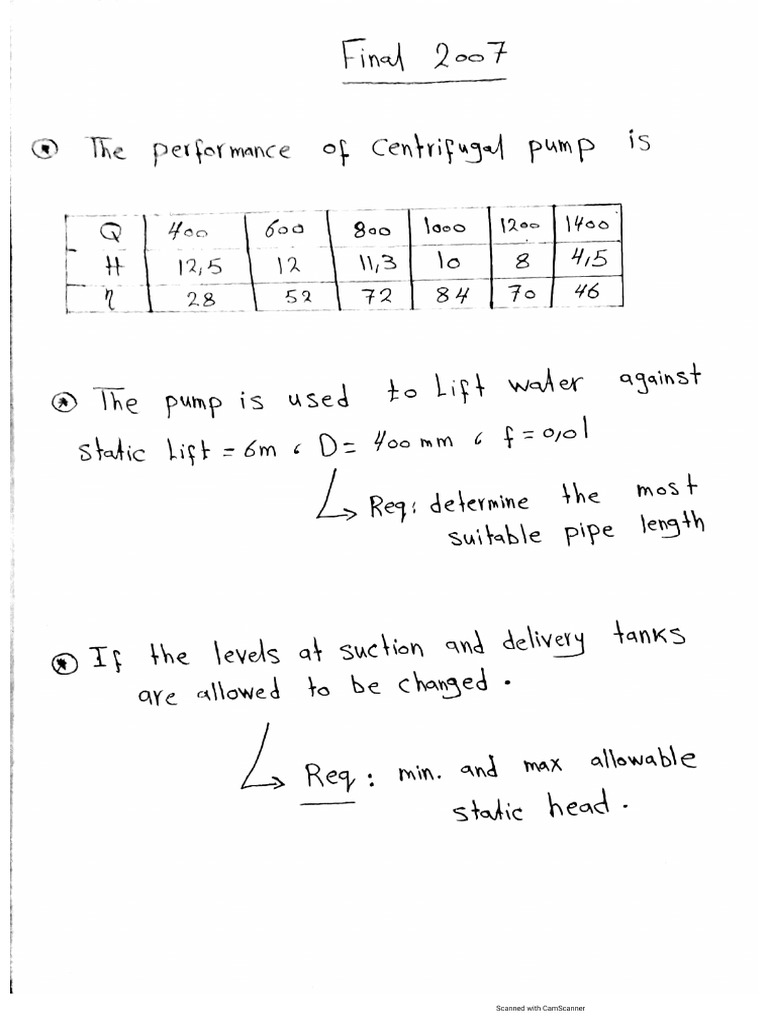 Final 2007
⊛ The performance of centrifugal pump is
Q 400 600 800 1000 1200 1400
H 12,5 12 11,3 10 8 4,5
η 28 52 72 84 70 46
⊛ The pump is used to Lift water against
static Lift = 6m ، D = 400 mm ، f = 0,01
↳ Req: determine the most
suitable pipe length
⊛ If the levels at suction and delivery tanks
are allowed to be changed.
↳ Req: min. and max allowable
static head.
Scanned with CamScanner